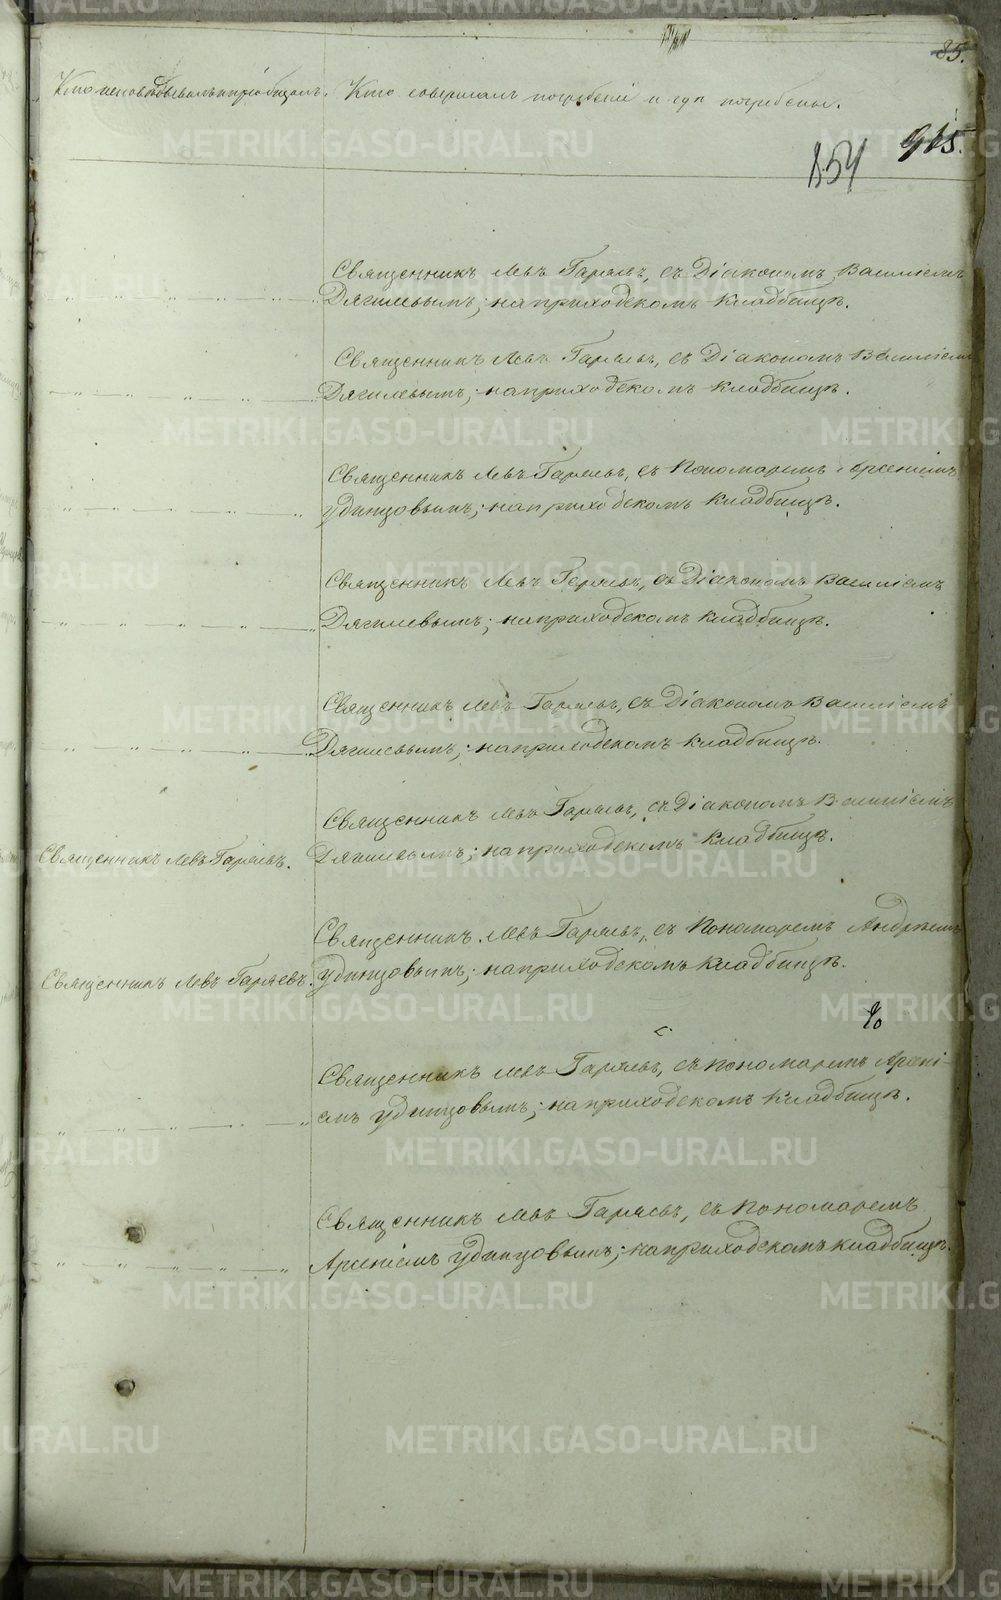 85.
Кто исповѣдывалъ и пріобщалъ. Кто совершалъ погребеніе и гдѣ погребены.
915.
854
Священникъ Левъ Гаряевъ, съ Діакономъ Василіемъ
Дягилевымъ; на приходскомъ кладбищѣ.
Священникъ Левъ Гаряевъ, съ Діакономъ Василіемъ
Дягилевымъ; на приходскомъ кладбищѣ.
Священникъ Левъ Гаряевъ, съ Пономаремъ Арсеніемъ
Удинцовымъ; на приходскомъ кладбищѣ.
Священникъ Левъ Гаряевъ, съ Діакономъ Василіемъ
Дягилевымъ; на приходскомъ кладбищѣ.
Священникъ Левъ Гаряевъ, съ Діакономъ Василіемъ
Дягилевымъ; на приходскомъ кладбищѣ.
Священникъ Левъ Гаряевъ, съ Діакономъ Василіемъ
Дягилевымъ; на приходскомъ кладбищѣ.
Священникъ Левъ Гаряевъ.
Священникъ Левъ Гаряевъ, съ Пономаремъ Андреемъ
Удинцовымъ; на приходскомъ кладбищѣ.
Священникъ Левъ Гаряевъ.
Священникъ Левъ Гаряевъ, съ Пономаремъ Арсені-
емъ Удинцовымъ; на приходскомъ кладбищѣ.
Священникъ Левъ Гаряевъ, съ Пономаремъ
Арсеніемъ Удинцовымъ; на приходскомъ кладбищѣ.
METRIKI.GASO-URAL.RU